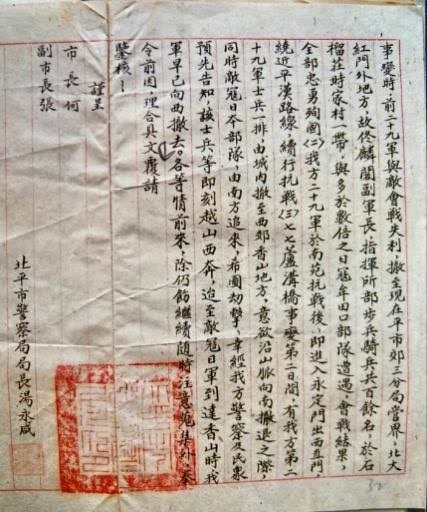 事變時，前二十九軍與敵會戰失利，撤至現在平市郊三分局管界，北大
紅門外地方，故佟麟閣副軍長，指揮所部步兵騎兵共百餘名，於石
榴莊時家村一帶，與多於數倍之日寇牟田口部隊遭遇，會戰結果，
全部忠勇殉國(二)我方二十九軍於南苑抗戰後，即進入永定門出西直門，
繞近平漢路線，續行抗戰(三)七七蘆溝橋事變第二日間，有我方第二
十九軍士兵一排，由城內撤至西郊香山地方，意欲沿山脈向南撤退之際，
同時敵寇日本部隊，由南方追來，希圖劫擊，幸經我方警察及民衆
預先告知，該士兵等即刻越山西奔，迨至敵寇日軍到達香山時，我
軍早已向西撤去。各等情前來，除仍飭繼續隨時注意蒐集外，奉
令前因理合具文覆請
鑒核！
謹呈
市長何
副市長張
北平市警察局局長湯永咸